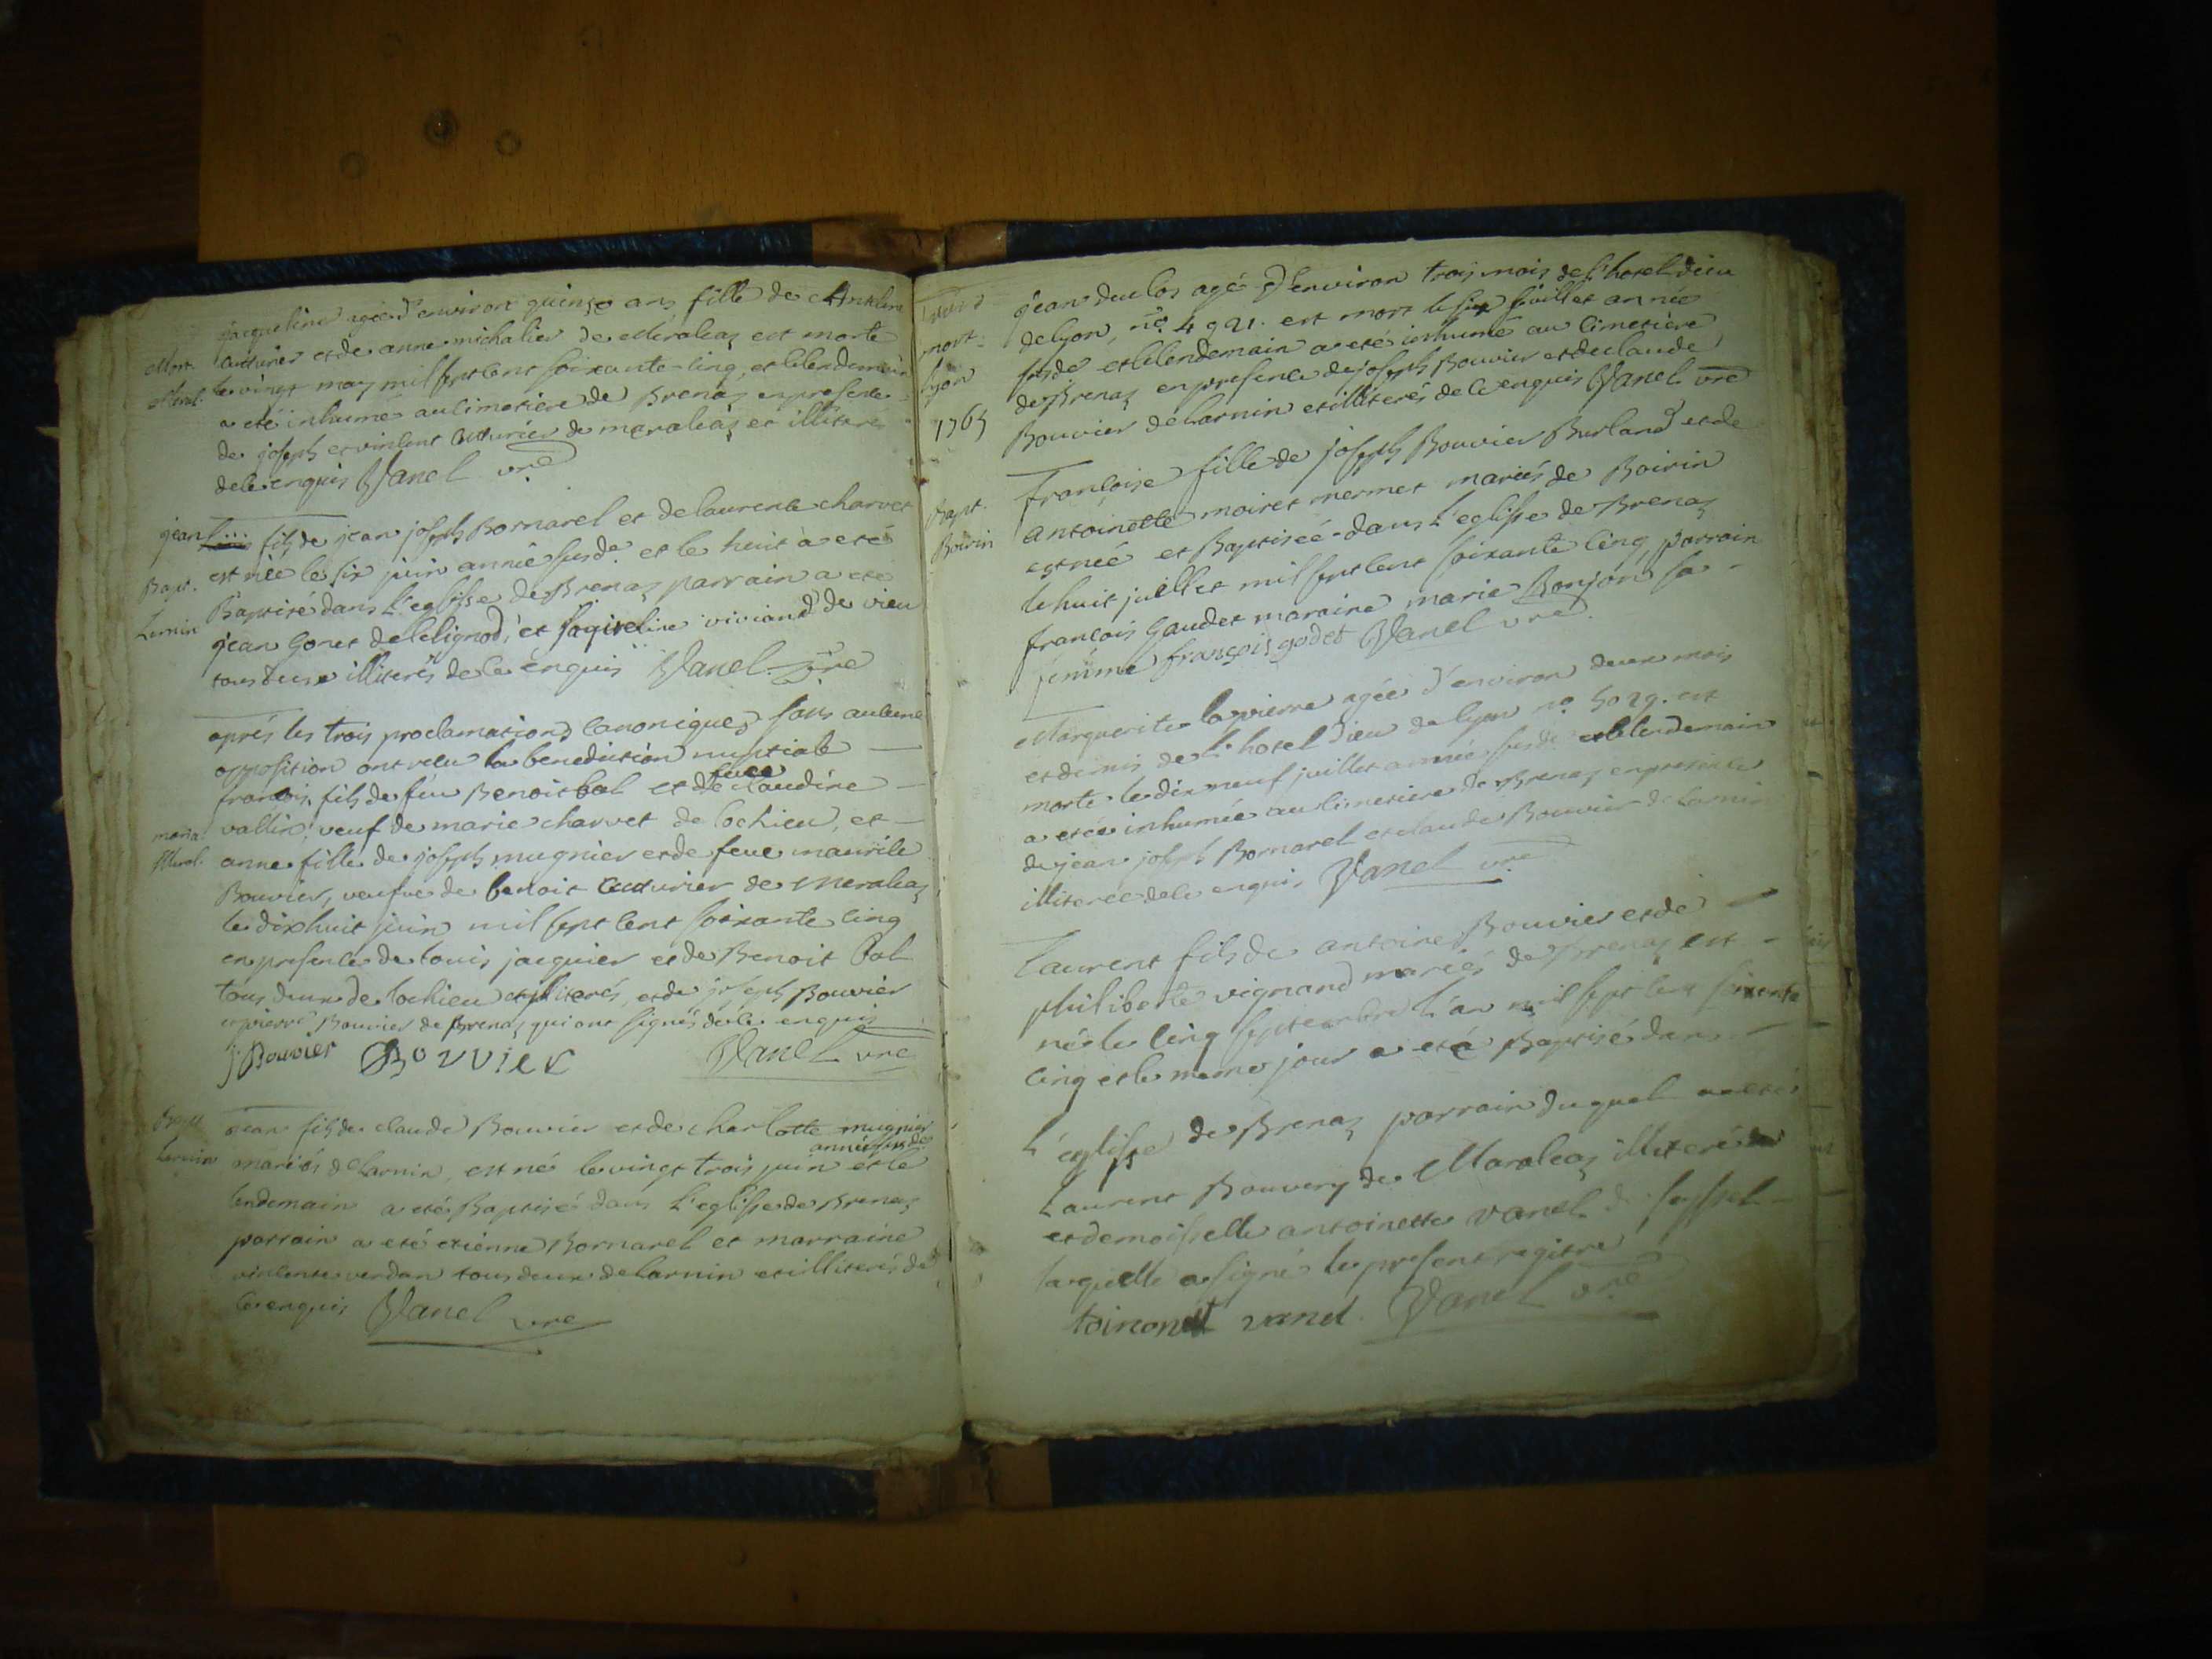 jacqueline agée d'environ quinze ans fille de Anthelme
Mort. cuturier et de anne michalier de Meraleaz est morte
Meral. le vingt may mil sept cent soixante-cinq, et le lendemain
a eté inhumée au cimetiere de Brenaz en presence
de joseph et vincent cuturier de meraleaz et illiterés
de ce enquis Vanel vre
jean fils de jean joseph Bornarel et de laurence charvet
est née le six juin année susde et le huit à eté
Bapt. Baptisé dans l'eglisse de Brenaz parrain a eté
Lernin jean Gonet de lelignod, et jaqueline viviand de vieu
tous deux illiterés de ce enquis Vanel vre
aprés les trois proclamations canoniques sans aucune
opposition ont recu la benediction nuptiale
francois fils de feu Benoit bal et de feue claudine
maria. vallin, veuf de marie charvet de lochieu, et
Meral. anne fille de joseph mugnier et de feue maurile
Bouvier, veufve de benoit cuturier de Meraleaz
le dixhuit juin mil sept cent soixante cinq
en presence de louis jacquier et de Benoit Bal
tous deux de lochieu et illiterés, et de joseph Bouvier
et pierre Bouvier de Brenaz qui ont signés de ce enquis
j: Bouvier BOVVIER Vanel vre
Bapt. jean fils de claude Bouvier et de charlotte mugnier
année susde
Larnin mariés de Larnin, est né le vingt trois juin et le
lendemain a eté Baptisé dans l'eglisse de Brenaz
parrain a eté etienne Bornarel et marraine
vincente verdan tous deux de larnin et illiterés de
ce enquis Vanel vre
jean duclos agé d'environ trois mois de l'hotel dieu
mort. de lyon, no. 4921. est mort le six juillet année
lyon susde et le lendemain a eté inhumé au cimetiere
de Brenaz en presence de joseph Bouvier et de claude
1765 Bouvier de larnin et illiterés de ce enquis Vanel vre
françoise fille de joseph Bouvier Burland et de
Bapt. antoinette moiret mermet mariés de Boirin
Boirin est née et Baptisée dans l'eglisse de Brenaz
le huit juillet mil sept cent soixante cinq, parrain
françois Gaudet maraine marie Bonjon sa
femme françois godet Vanel vre.
Marguerite lapierre agée d'environ deux mois
et demis de l'hotel Dieu de lyon no. 5029. est
morte le dix neuf juillet année susde et le lendemain
a etée inhumée au cimetiere de Brenaz en presence
de jean joseph Bornarel et claude Bouvier de Larnin
illiterée de ce enquis Vanel vre
Laurent fils de antoine Bouvier et de
philiberte vignand mariés de Brenaz est
né le cinq septembre l'an mil sept cent soixante
cinq et le meme jour a eté Baptisé dans
l'eglisse de Brenaz parrain duquel a eté
Laurent Bouvery de Maraleaz illiteré
et demoisselle antoinette vanel de seyssel
laquelle a signé le present registre
toinonett vanel. Vanel vre